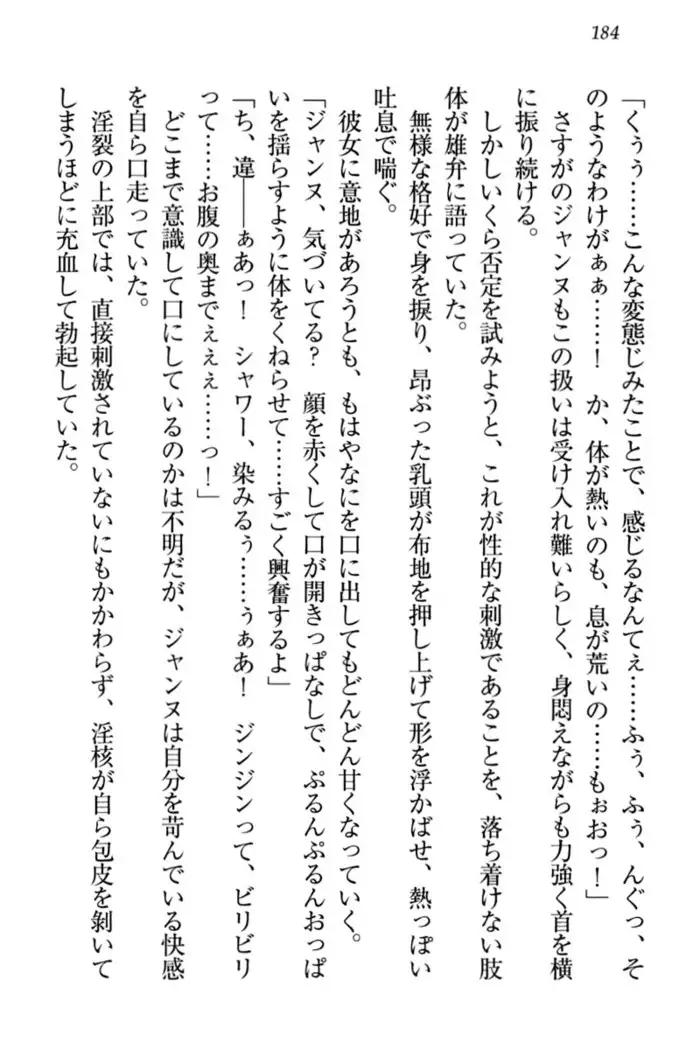 184
「くぅぅ……こんな変態じみたことで、感じるなんてぇ……ふぅ、ふぅ、んぐっ、そ
のようなわけがぁぁ……！　か、体が熱いのも、息が荒いの……もぉおっ！」
　さすがのジャンヌもこの扱いは受け入れ難いらしく、身悶えながらも力強く首を横
に振り続ける。
　しかしいくら否定を試みようと、これが性的な刺激であることを、落ち着けない肢
体が雄弁に語っていた。
　無様な格好で身を捩り、昂ぶった乳頭が布地を押し上げて形を浮かばせ、熱っぽい
吐息で喘ぐ。
　彼女に意地があろうとも、もはやなにを口に出してもどんどん甘くなっていく。
「ジャンヌ、気づいてる？　顔を赤くして口が開きっぱなしで、ぷるんぷるんおっぱ
いを揺らすように体をくねらせて……すごく興奮するよ」
「ち、違――ぁあっ！　シャワー、染みるぅ……ぅぁあ！　ジンジンって、ビリビリ
って……お腹の奥までぇぇぇ……っ！」
　どこまで意識して口にしているのかは不明だが、ジャンヌは自分を苛んでいる快感
を自ら口走っていた。
　淫裂の上部では、直接刺激されていないにもかかわらず、淫核が自ら包皮を剝いて
しまうほどに充血して勃起していた。